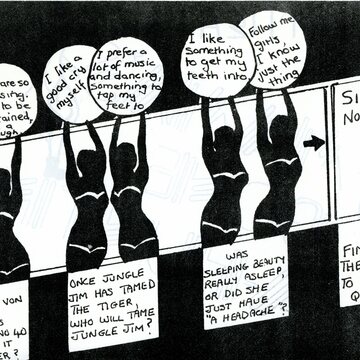 are so
sing.
to be
tained,
a
ugh.
I like a
good cry
myself
I prefer a
lot of music
and dancing,
something to
tap my
feet to
I like
something
to get my
teeth into
Follow me
girls,
I know
just the
thing
SI
NO
VON
S
NO 40
IT
ER?
ONCE JUNGLE
JIM HAS TAMED
THE TIGER,
WHO WILL TAME
JUNGLE JIM?
WAS
SLEEPING BEAUTY
REALLY ASLEEP,
OR DID SHE
JUST HAVE
"A HEADACHE"?
FIN
THE
TO
Q